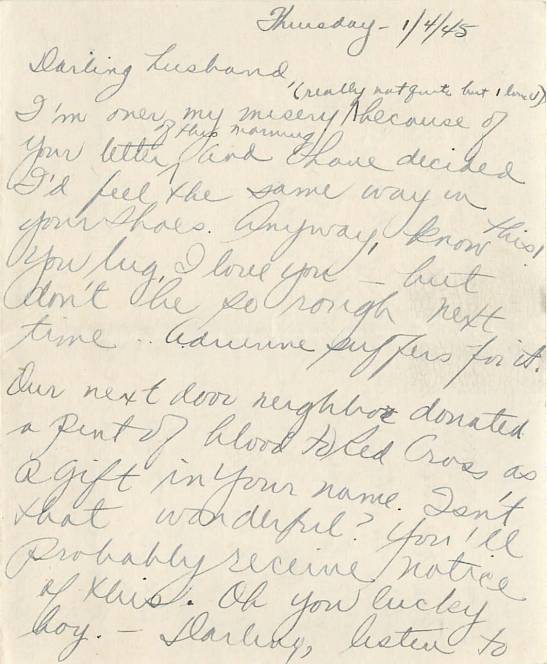 Thursday - 1/4/45
Darling husband,
(really not quite but I love U)
I'm over my misery because of
of this morning
your letter, and I have decided
I'd feel the same way in
your shoes. Anyway, know this!
You lug, I love you - but
don't be so rough next
time .. Adrienne suffers for it.
Our next door neighbor donated
a pint of blood to Red Cross as
a gift in your name. Isn't
that wonderful? You'll
probably receive notice
of this. Oh you lucky
boy. - Darling, listen to